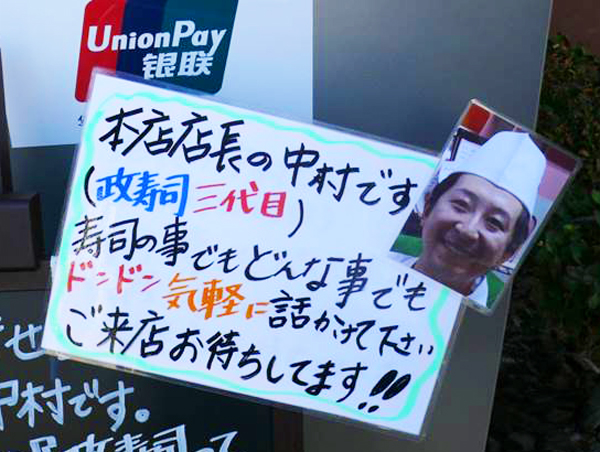 UnionPay
银联
本店店長の中村です
(政寿司三代目)
寿司の事でもどんな事でも
ドンドン気軽に話かけて下さい
ご来店お待ちしてます!!
せ
中村です。
政寿司って